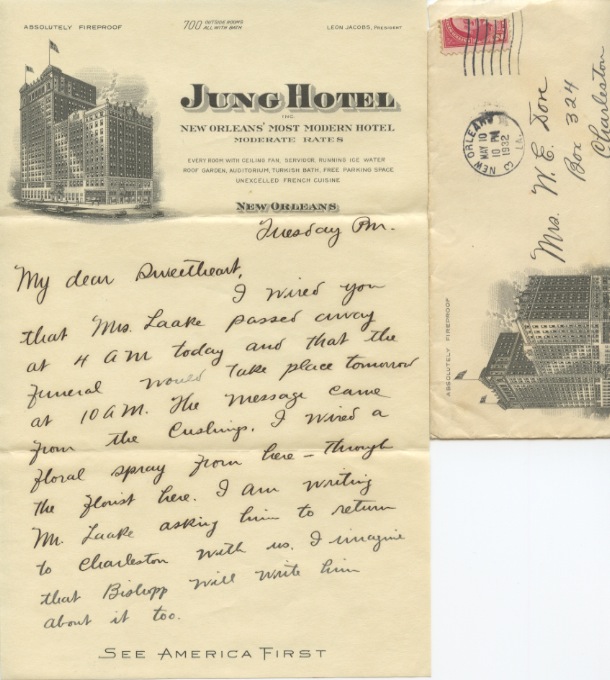 ABSOLUTELY FIREPROOF
700 OUTSIDE ROOMS ALL WITH BATH
LEON JACOBS, PRESIDENT
JUNG HOTEL
INC.
NEW ORLEANS' MOST MODERN HOTEL
MODERATE RATES
EVERY ROOM WITH CEILING FAN, SERVIDOR, RUNNING ICE WATER
ROOF GARDEN, AUDITORIUM, TURKISH BATH, FREE PARKING SPACE
UNEXCELLED FRENCH CUISINE
NEW ORLEANS
Tuesday PM.
My dear Sweetheart,
I wired you
that Mrs. Laake passed away
at 4 AM today and that the
funeral would take place tomorrow
at 10 AM. The message came
from the Cushings. I wired a
floral spray from here – through
the florist here. I am writing
Mr. Laake asking him to return
to Charleston with us. I imagine
that Bishopp will write him
about it too.
SEE AMERICA FIRST
NEW ORLEANS
LA.
3
MAY 10
10 PM
1932
Mrs. W. E. Dove
Box 324
Charleston
ABSOLUTELY FIREPROOF